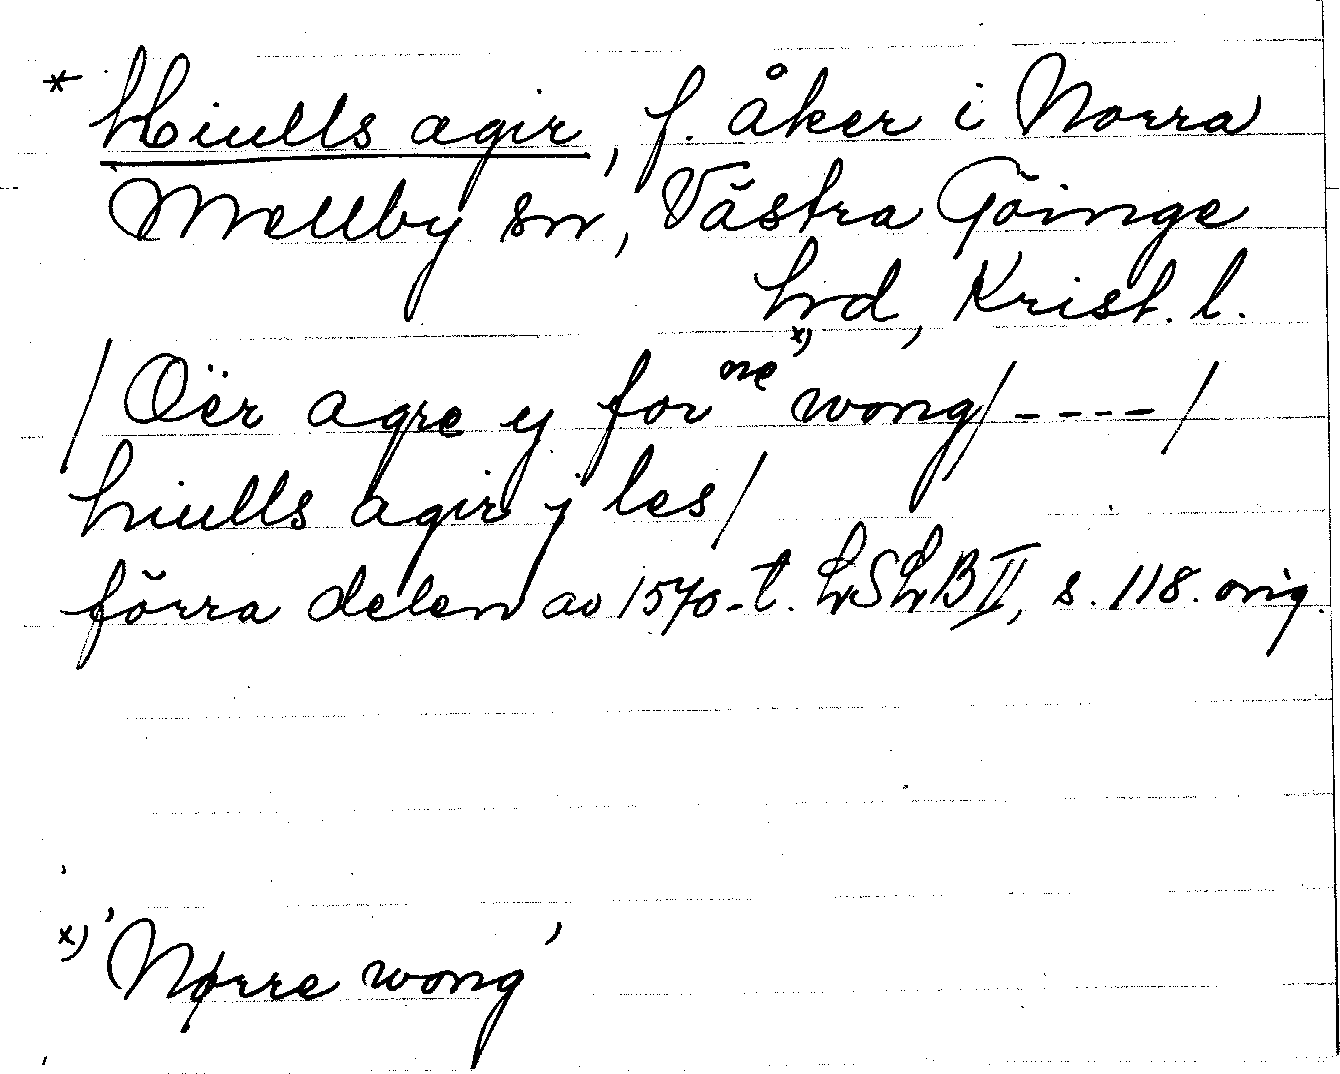 * Hiulls agir, f. åker i Norra
Mellby sn, Västra Göinge
hrd, Krist. l.
/ Oër agre y for ne x) wong/ ---- /
hiulls agir j les/
förra delen av 1570-t. LSLB II, s. 118. orig.
x) 'Nørre wong'